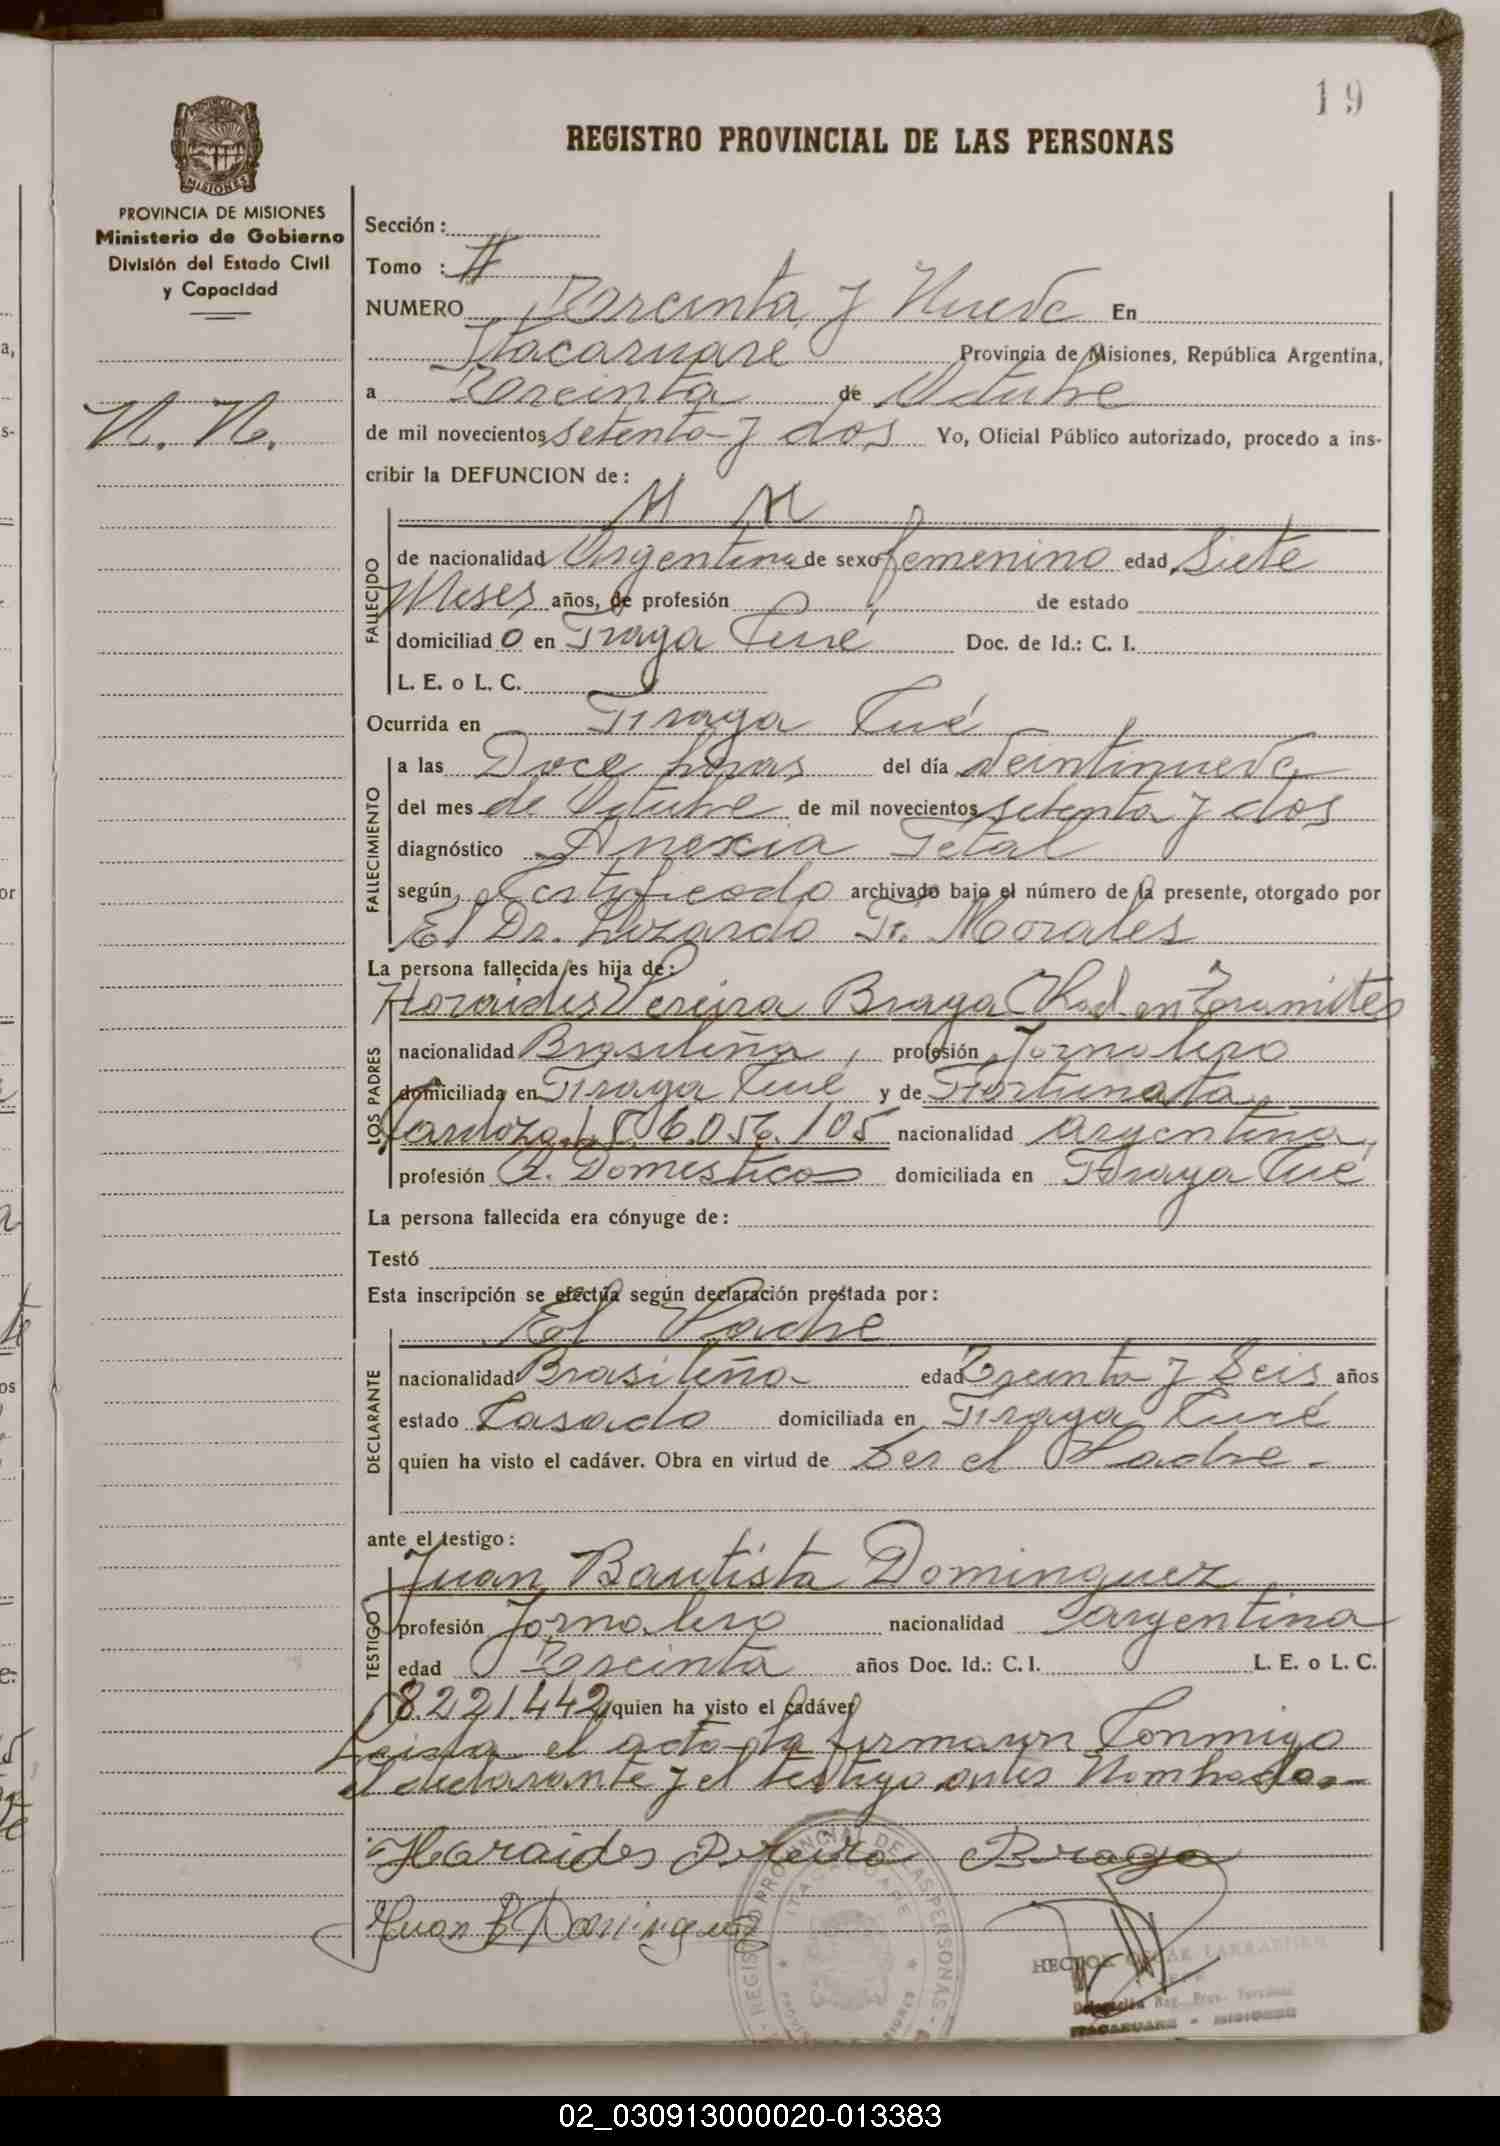 19
REGISTRO PROVINCIAL DE LAS PERSONAS
MISIONES
PROVINCIA DE MISIONES
Ministerio de Gobierno
División del Estado Civil
y Capacidad
N. N.
Sección :
Tomo : #
NUMERO Treinta y Nueve En
Itacaruare Provincia de Misiones, República Argentina,
a Treinta de Octubre
de mil novecientos setenta y dos Yo, Oficial Público autorizado, procedo a ins-
cribir la DEFUNCION de :
N N
FALLECIDO
de nacionalidad Argentina de sexo femenino edad Siete
Meses años, de profesión de estado
domiciliad o en Fraga Cué Doc. de Id.: C. I.
L. E. o L. C.
Ocurrida en Fraga Cué
FALLECIMIENTO
a las Doce horas del día Veintinueve
del mes de Octubre de mil novecientos setenta y dos
diagnóstico Anexia Fetal
según Certificado archivado bajo el número de la presente, otorgado por
El Dr. Lizardo Fr. Morales
La persona fallecida es hija de :
LOS PADRES
Horaides Pereira Braga Rad. en Tramites
nacionalidad Brasileña, profesión Jornalero
domiciliada en Fraga Cué y de Fortunata
Cardozo 6.056.105 nacionalidad argentina,
profesión Q. Domesticos domiciliada en Fraga Cué
La persona fallecida era cónyuge de :
Testó
Esta inscripción se efectúa según declaración prestada por :
El Padre
DECLARANTE
nacionalidad Brasileña edad Treinta y Seis años
estado Casado domiciliada en Fraga Cué
quien ha visto el cadáver. Obra en virtud de Ser el Padre.-
ante el testigo :
Juan Bautista Dominguez
TESTIGO
profesión Jornalero nacionalidad argentina
edad Treinta años Doc. Id.: C. I. L. E. o L. C.
8.221.442 quien ha visto el cadáver
Leida el acta la firman Conmigo
el declarante y el testigo antes Nombrados.-
Haraides Pereira Braga
Juan B Dominguez
REGISTRO PROVINCIAL DE LAS PERSONAS
ITACARUARE
HECTOR OSCAR
Delegación Reg. Prov. Personas
ITACARUARE - MISIONES
02_030913000020-013383